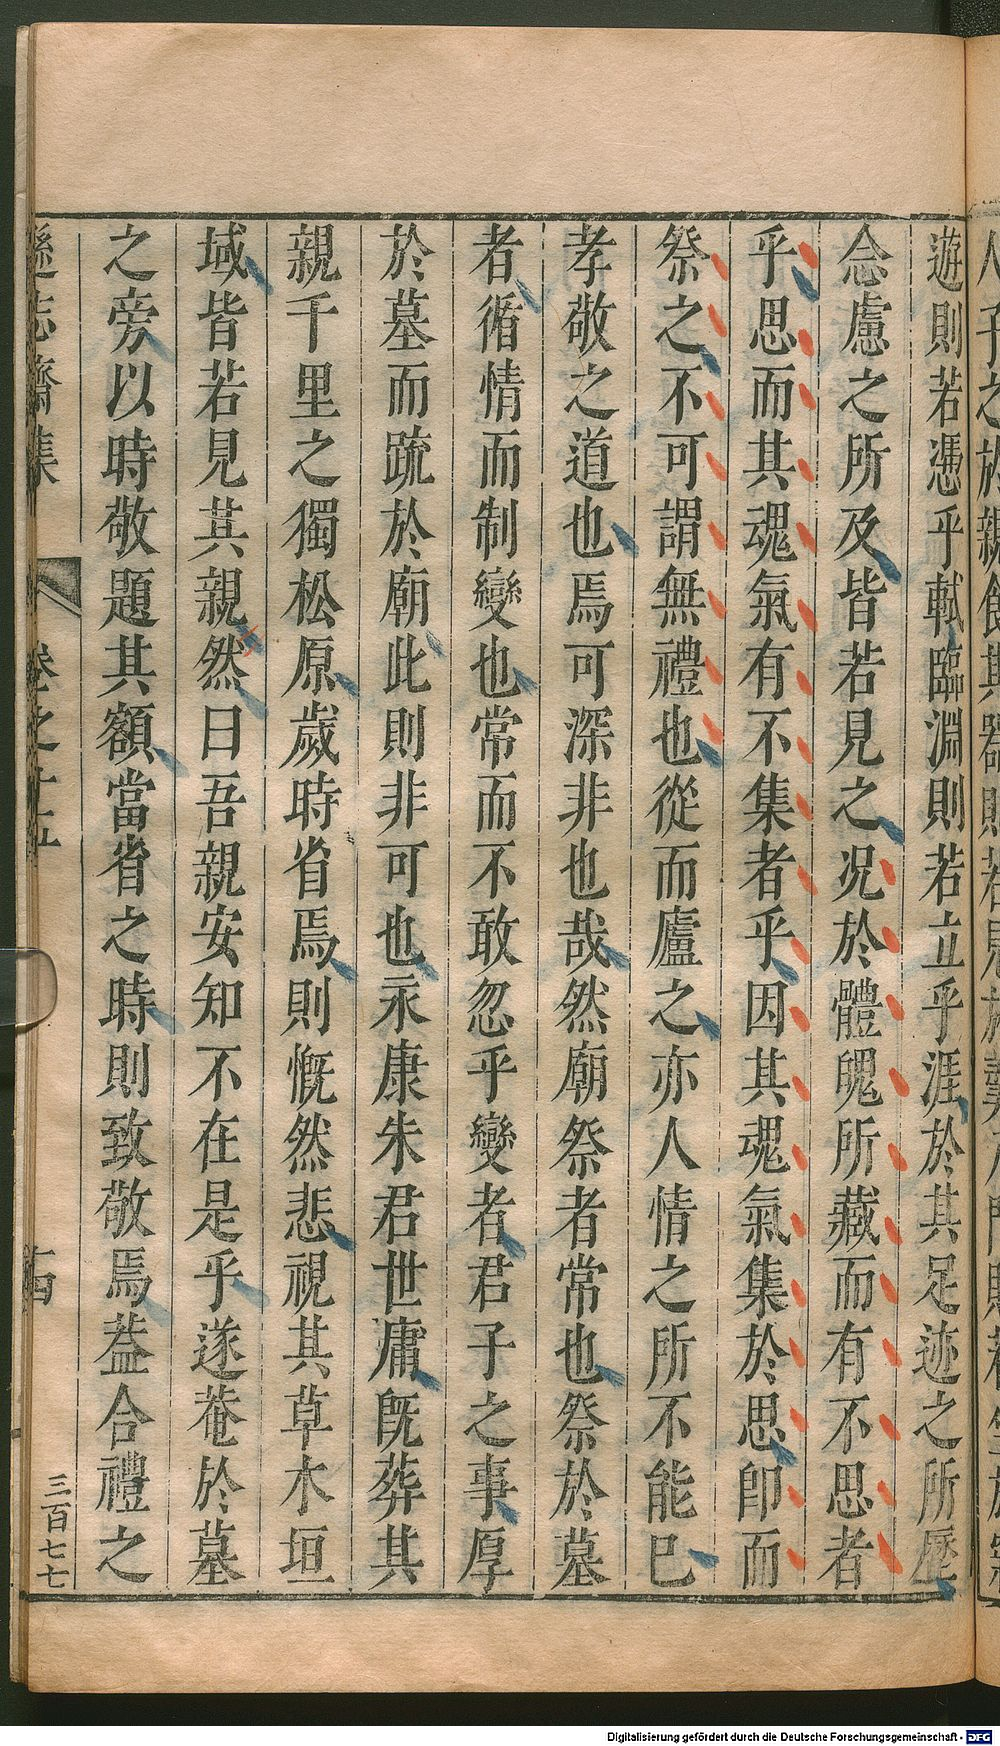 遊則若憑乎軾臨淵則若立乎涯於其足迹之所歷
念慮之所及皆若見之况於體魄所藏而有不思者
乎思而其魂氣有不集者乎因其魂氣集於思卽而
祭之不可謂無禮也從而廬之亦人情之所不能已
孝敬之道也焉可深非也哉然廟祭者常也祭於墓
者循情而制變也常而不敢忽乎變者君子之事厚
於墓而䟽於廟此則非可也永康朱君世庸旣葬其
親千里之獨松原歲時省焉則慨然悲視其草木垣
域皆若見其親然曰吾親安知不在是乎遂菴於墓
之旁以時敬題其額當省之時則致敬焉葢合禮之
遜志齋集
卷之十五
十四
三百七七
Digitalisierung gefördert durch die Deutsche Forschungsgemeinschaft - DFG